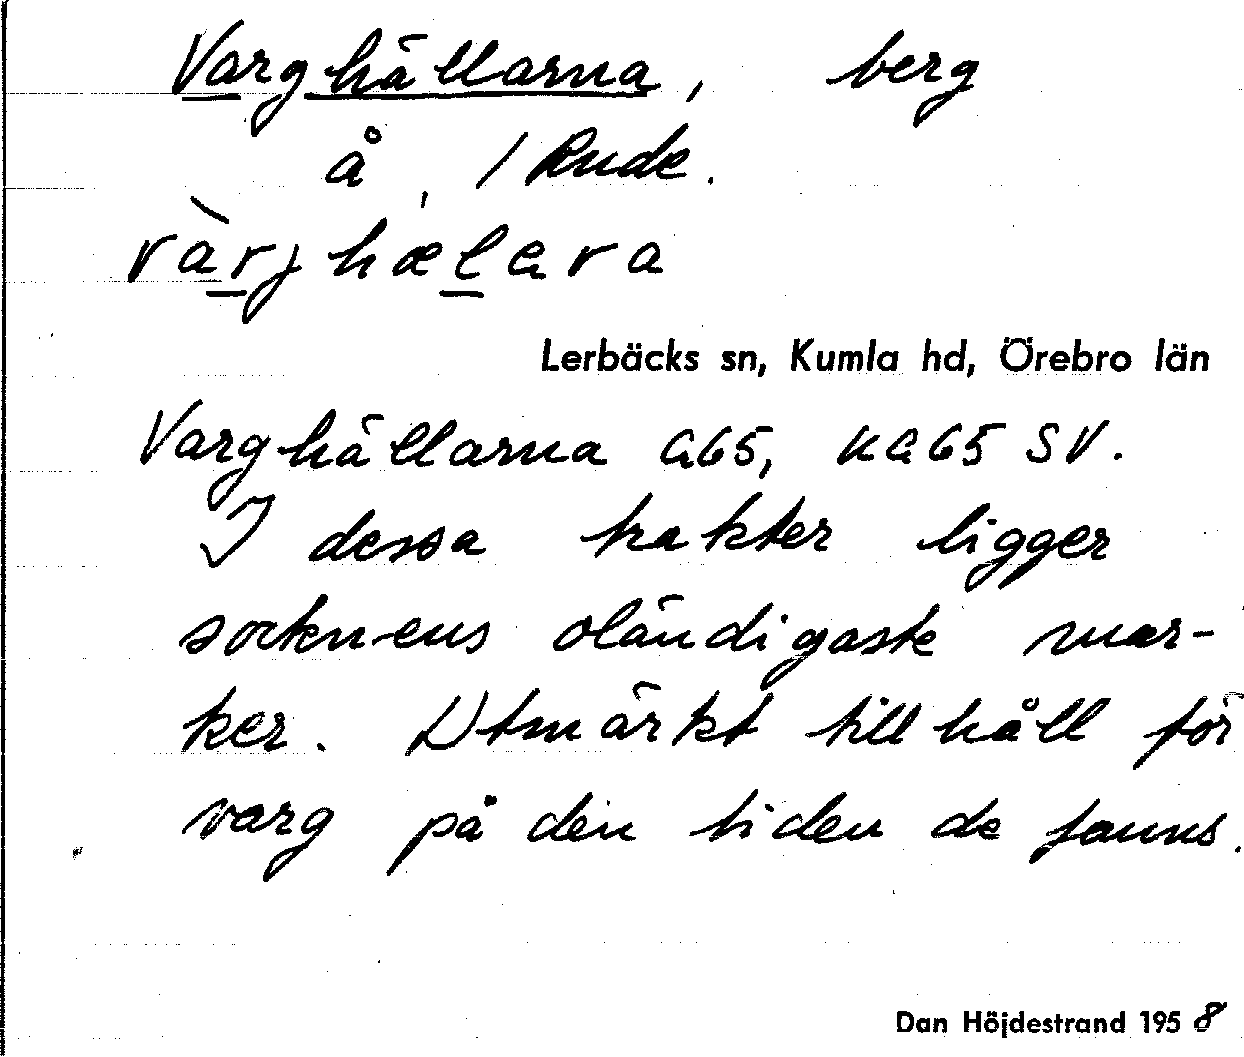 Varghällarna, berg
å, 1 Rude.
vàrjhælara
Lerbäcks sn, Kumla hd, Örebro län
Varghällarna G65, UG65 SV.
I dessa trakter ligger
socknens oländigaste mar-
ker. Utmärkt tillhåll för
varg på den tiden de fanns.
Dan Höjdestrand 1958